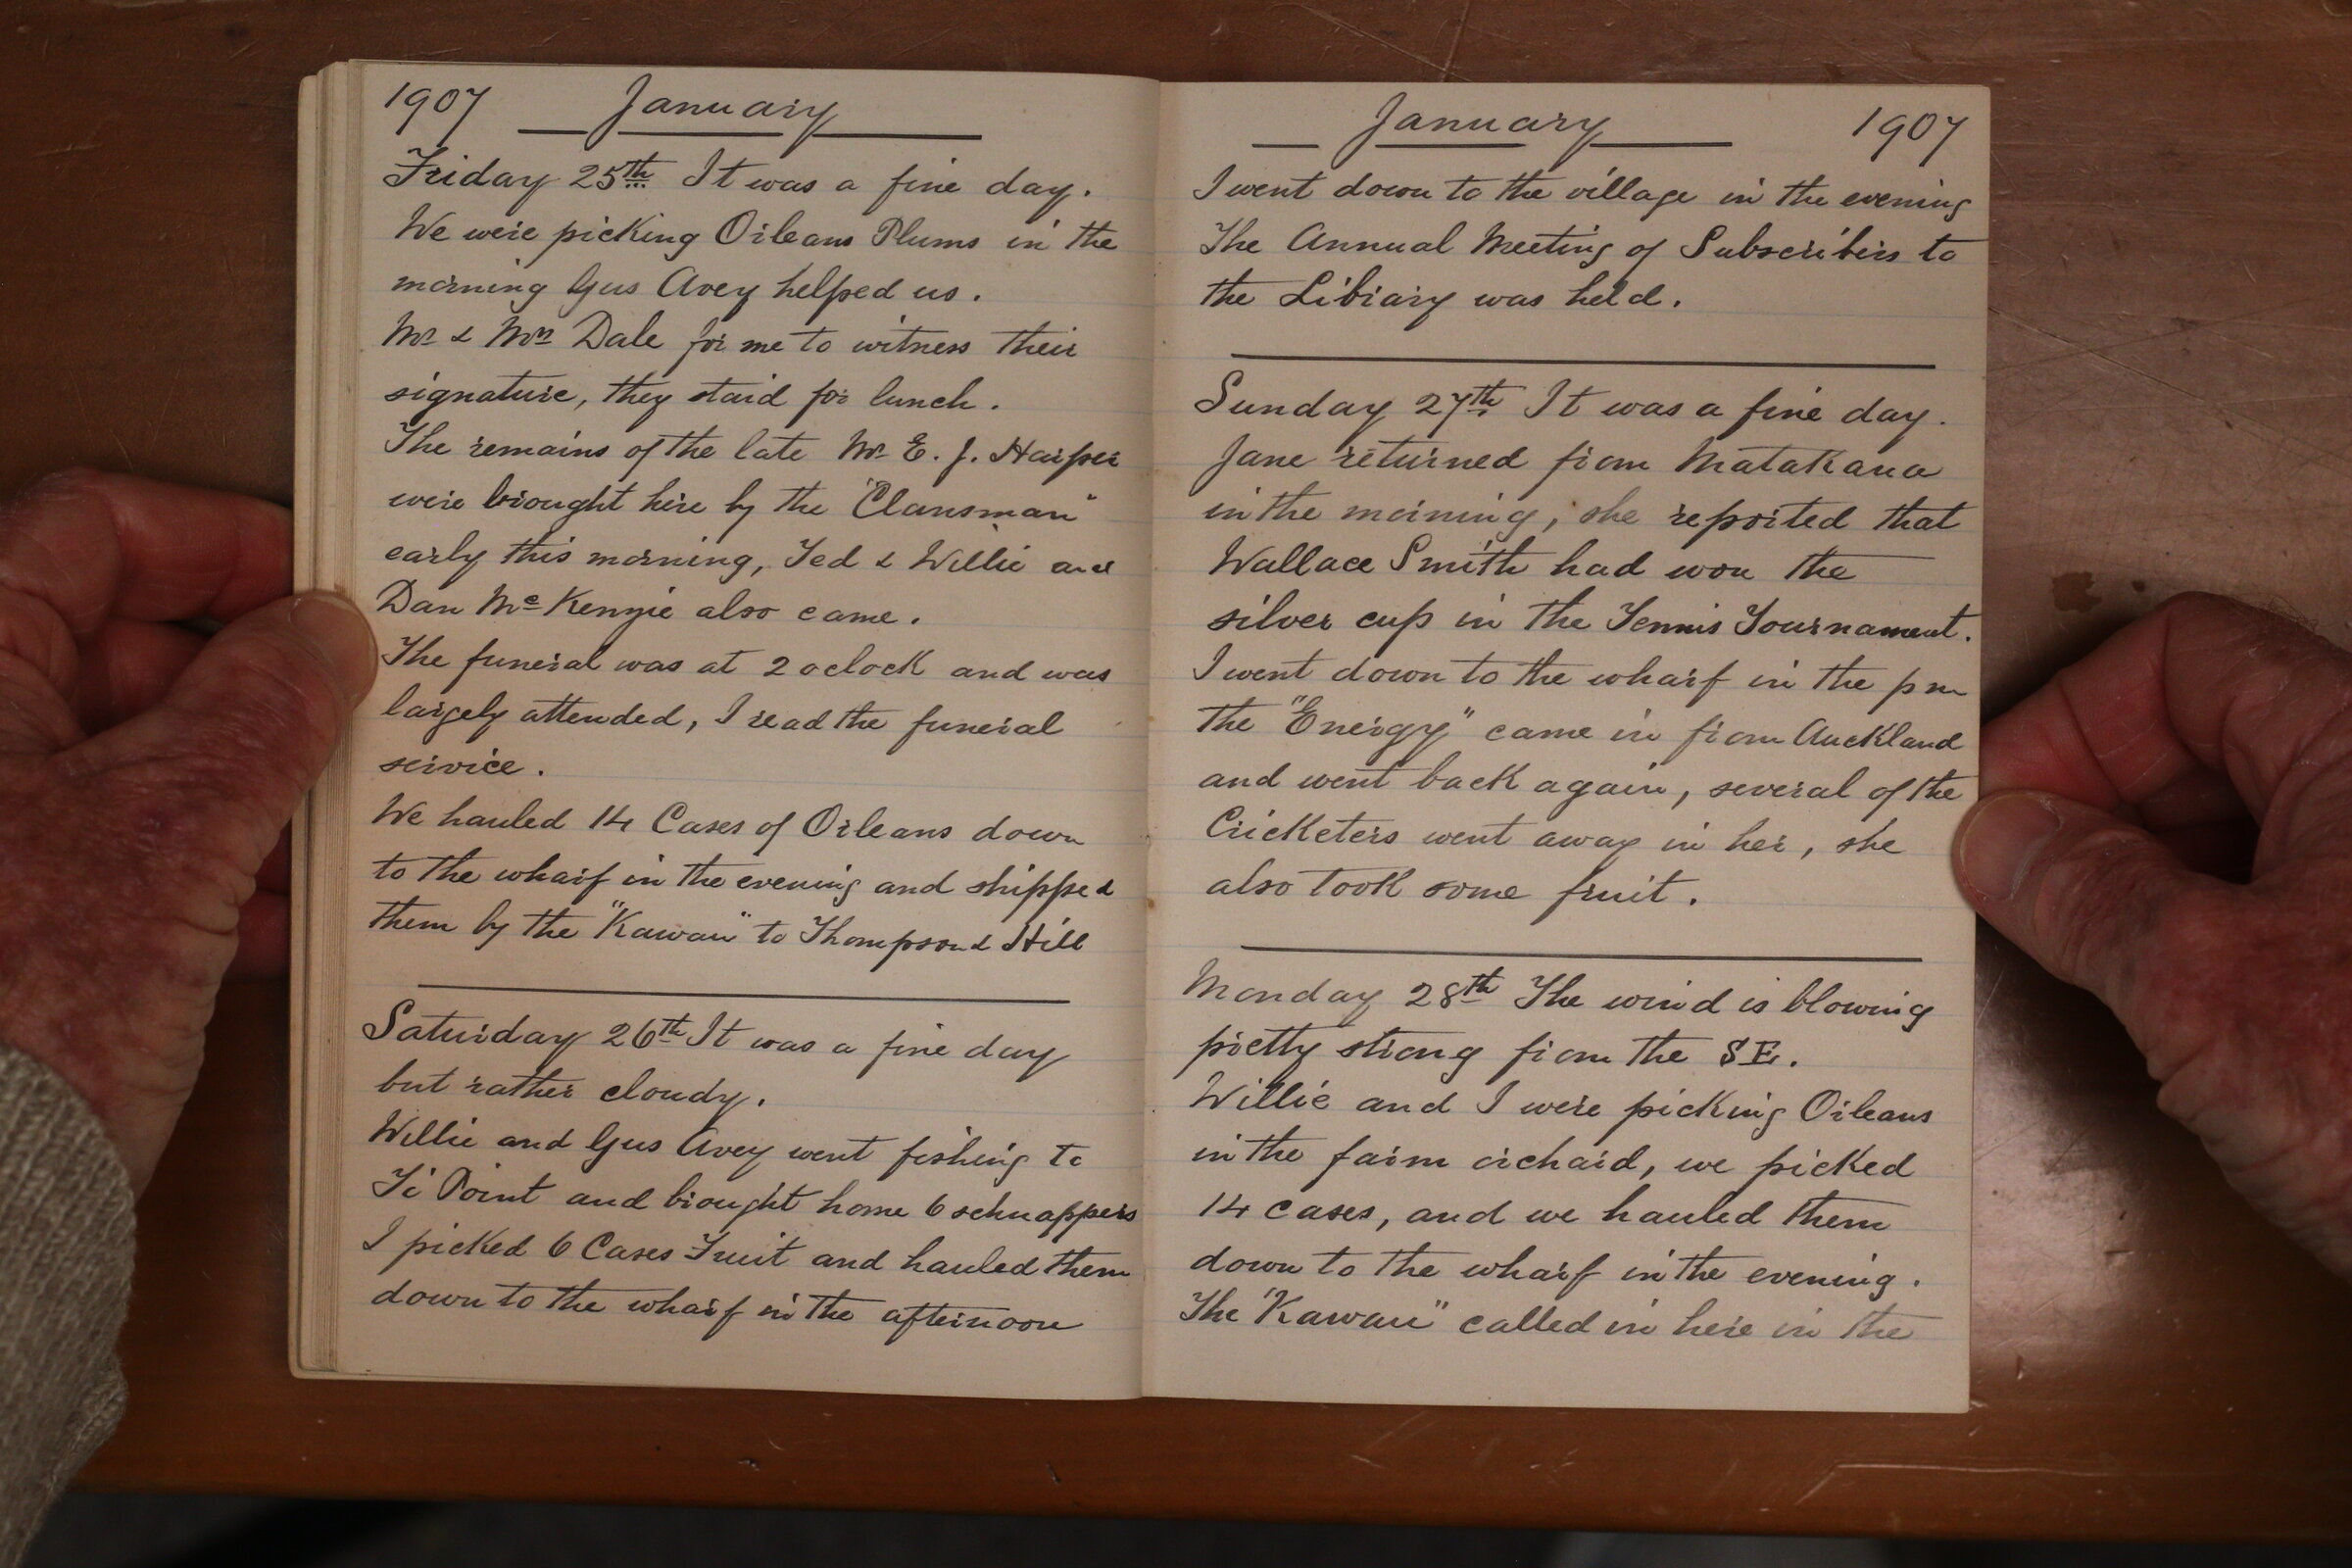 1907 January
Friday 25th It was a fine day.
We were picking Orleans Plums in the
morning Gus Avey helped us.
Mr & Mrs Dale for me to witness their
signature, they staid for lunch.
The remains of the late Mr E. J. Harper
were brought here by the "Clansman"
early this morning, Ted & Willie and
Dan McKenzie also came.
The funeral was at 2 oclock and was
largely attended, I read the funeral
service.
We hauled 14 Cases of Orleans down
to the wharf in the evening and shipped
them by the "Kawau" to Thompson & Hill
Saturday 26th It was a fine day
but rather cloudy.
Willie and Gus Avey went fishing to
Ti Point and brought home 6 schnappers
I picked 6 Cases Fruit and hauled them
down to the wharf in the afternoon
January 1907
I went down to the village in the evening
The Annual Meeting of Subscribers to
the Library was held.
Sunday 27th It was a fine day.
Jane returned from Matakana
in the morning, she reported that
Wallace Smith had won the
silver cup in the Tennis Tournament.
I went down to the wharf in the pm
the "Energy" came in from Auckland
and went back again, several of the
Cricketers went away in her, she
also took some fruit.
Monday 28th The wind is blowing
pretty strong from the SE.
Willie and I were picking Orleans
in the farm orchard, we picked
14 cases, and we hauled them
down to the wharf in the evening.
The "Kawau" called in here in the